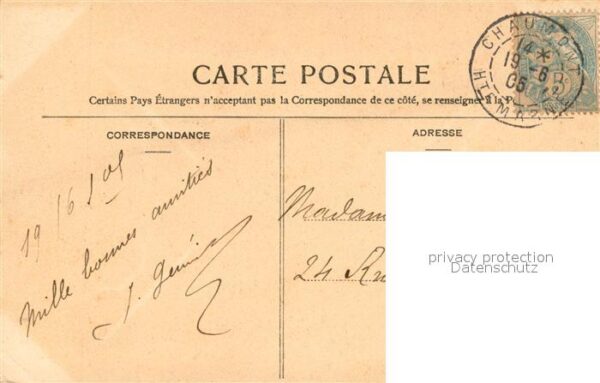 CHAUMONT
14 *
19 - 6
05
HTE MARNE
CARTE POSTALE
Certains Pays Étrangers n'acceptant pas la Correspondance de ce côté, se renseigner à la P
CORRESPONDANCE
ADRESSE
19 / 6 / 05
Mille bonnes amitiés
J.
Madam
24 Ru
privacy protection
Datenschutz